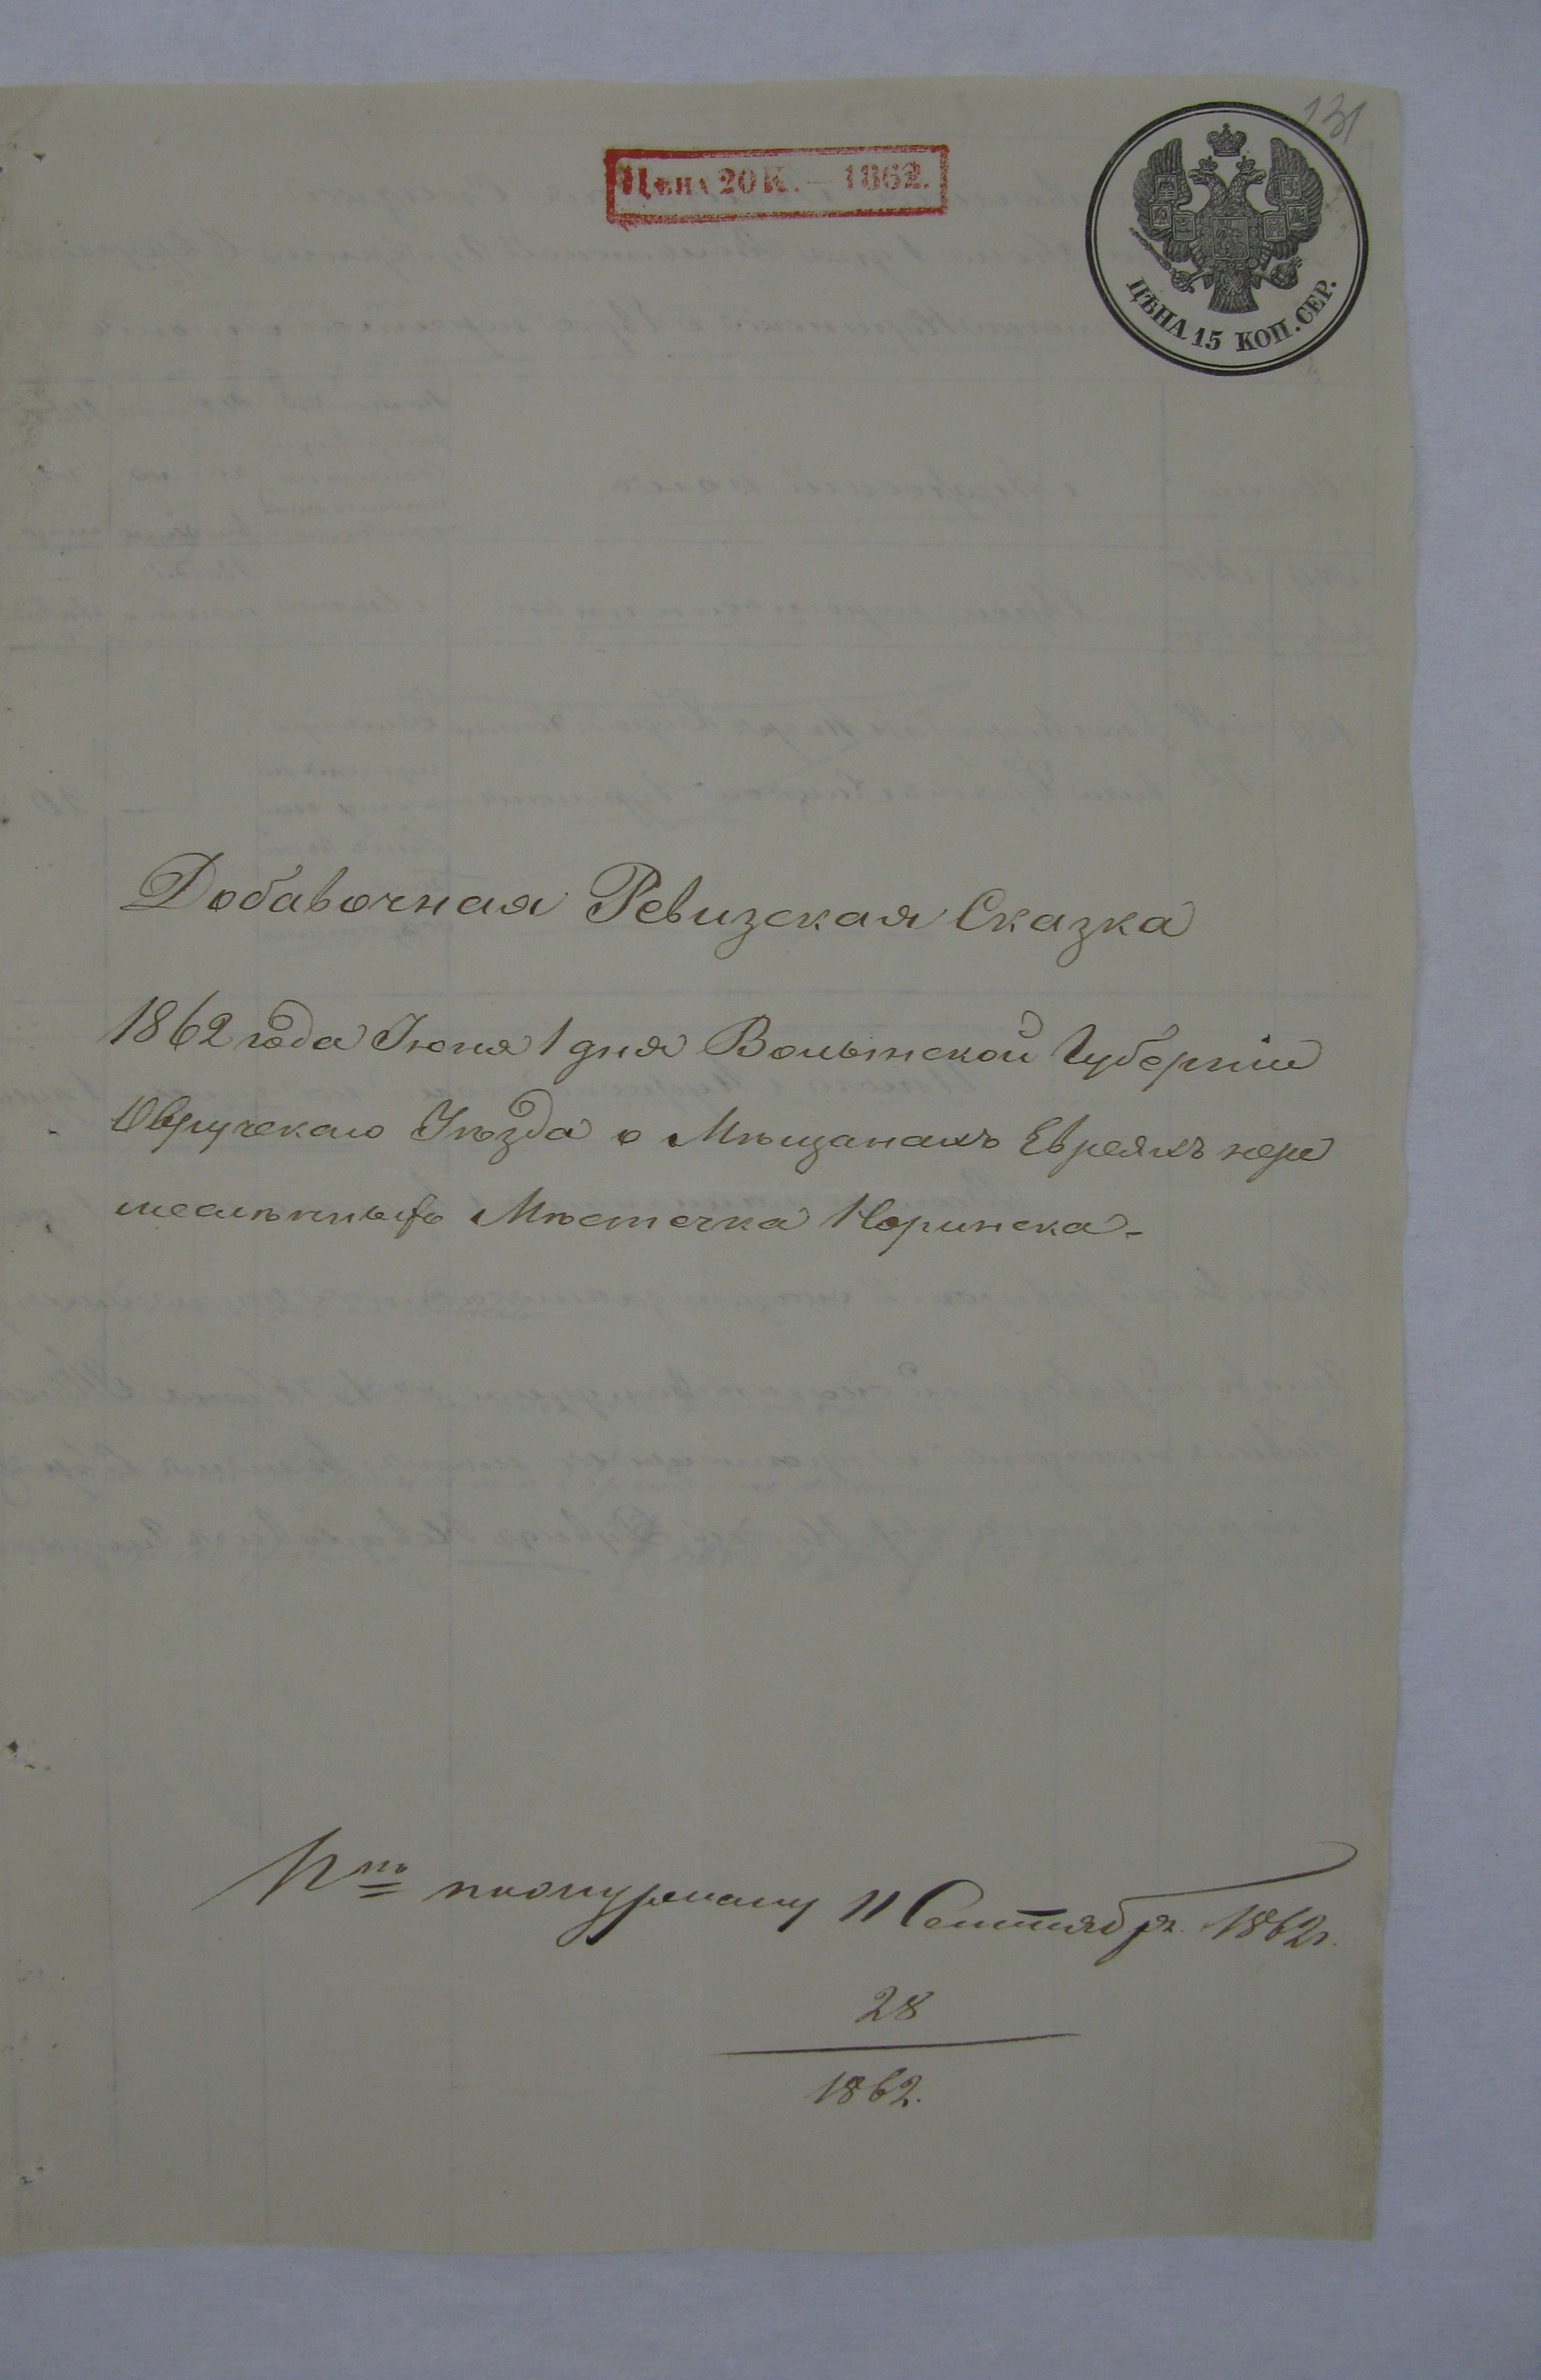 131
ЦѢНА 20 К. — 1862.
ЦѢНА 15 КОП. СЕР.
Добавочная Ревизская Сказка
1862 года Іюня 1 дня Волынской Губерніи
Овручскаго Уѣзда о Мѣщанахъ Евреяхъ
Мѣстечка Норинска
11 Сентября 1862
28
1862.